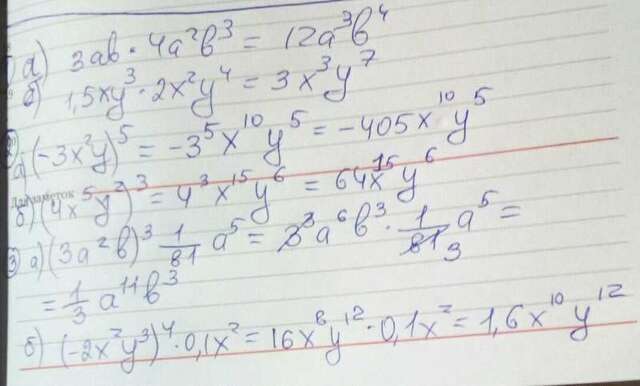 а) 3ab · 4a²b³ = 12a³b⁴
б) 1,5xy³ · 2x²y⁴ = 3x³y⁷
2 а) (-3x²y)⁵ = -3⁵x¹⁰y⁵ = -405x¹⁰y⁵
б) (4x⁵y²)³ = 4³x¹⁵y⁶ = 64x¹⁵y⁶
3 а) (3a²b)³ 1/81 a⁵ = 3³a⁶b³ · 1/81 3 a⁵ =
= 1/3 a¹¹b³
б) (-2x²y³)⁴ · 0,1x² = 16x⁸y¹² · 0,1x² = 1,6x¹⁰y¹²